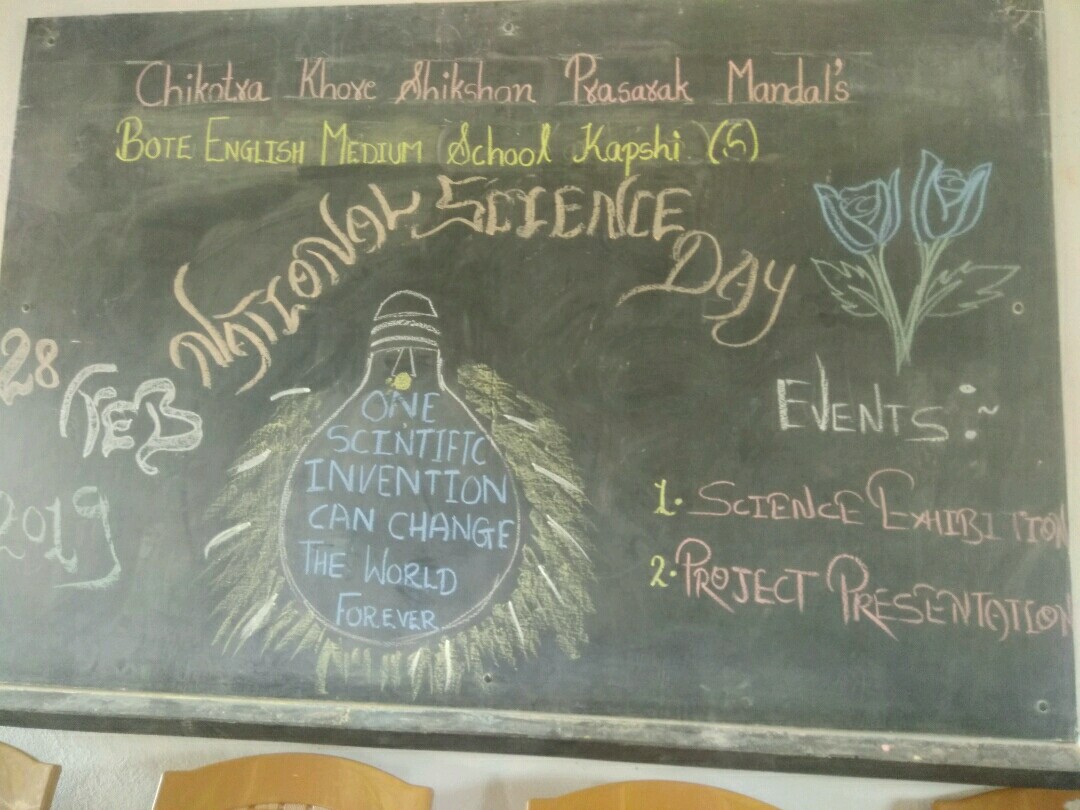 Chikotra Khore Shikshan Prasarak Mandal's
BOTE ENGLISH MEDIUM School Kapshi (S)
NATIONAL SCIENCE DAY
28 FEB
2019
ONE
SCINTIFIC
INVENTION
CAN CHANGE
THE WORLD
FOREVER
EVENTS :~
1. SCIENCE EXHIBITION
2. PROJECT PRESENTATION